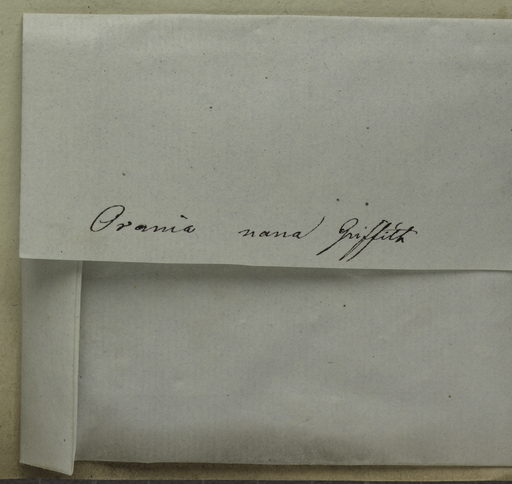 Orania nana Griffith